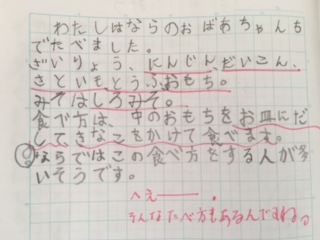 わたしはならのおばあちゃんち
でたべました。
ざいりょう、にんじんだいこん、
さといもとうふおもち。
みそはしろみそ。
食べ方は、中のおもちをお皿にだ
してきなこをかけて食べます。
ならではこの食べ方をする人が多
いそうです。
へえー。
そんなたべ方もあるんですねっ